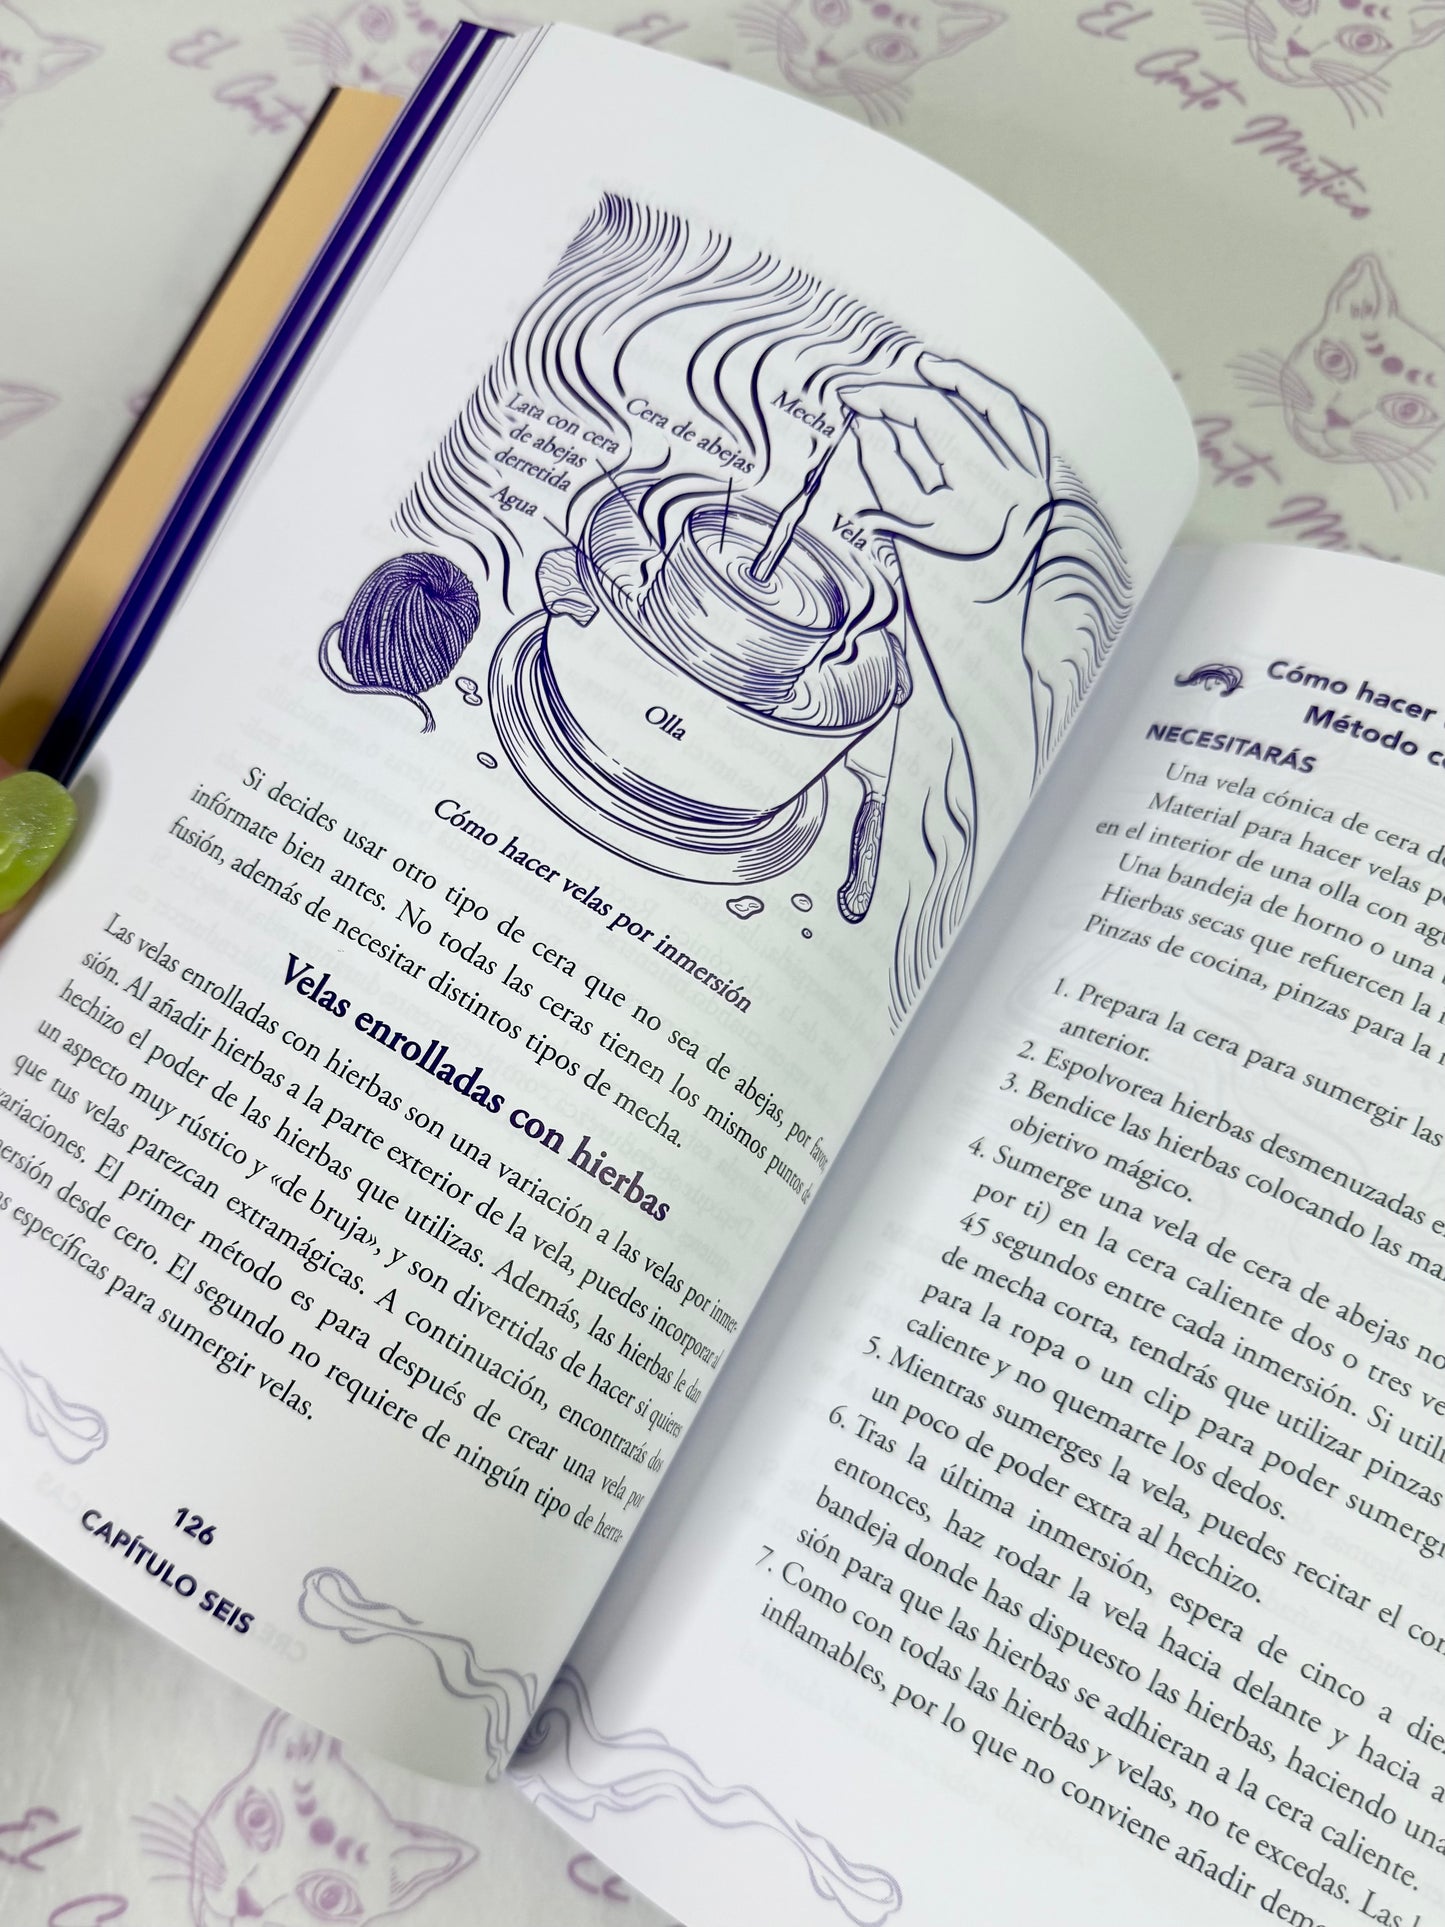 El
Canto
Místico
El
Canto
Místico
Canto
Místico
Lata con cera
de abejas
derretida
Agua
Cera de abejas
Mecha
Vela
Olla
Cómo hacer velas por inmersión
Si decides usar otro tipo de cera que no sea de abejas, por favor,
infórmate bien antes. No todas las ceras tienen los mismos puntos de
fusión, además de necesitar distintos tipos de mecha.
Velas enrolladas con hierbas
Las velas enrolladas con hierbas son una variación a las velas por inmer-
sión. Al añadir hierbas a la parte exterior de la vela, puedes incorporar al
hechizo el poder de las hierbas que utilizas. Además, las hierbas le dan
un aspecto muy rústico y «de bruja», y son divertidas de hacer si quieres
que tus velas parezcan extramágicas. A continuación, encontrarás dos
variaciones. El primer método es para después de crear una vela por
mersión desde cero. El segundo no requiere de ningún tipo de herra-
as específicas para sumergir velas.
126
CAPÍTULO SEIS
Cómo hacer
Método co
NECESITARÁS
Una vela cónica de cera d
Material para hacer velas p
en el interior de una olla con agu
Una bandeja de horno o una
Hierbas secas que refuercen la
Pinzas de cocina, pinzas para la
1. Prepara la cera para sumergir las
anterior.
2. Espolvorea hierbas desmenuzadas e
3. Bendice las hierbas colocando las ma
objetivo mágico.
4. Sumerge una vela de cera de abejas no
por ti) en la cera caliente dos o tres ve
45 segundos entre cada inmersión. Si utili
de mecha corta, tendrás que utilizar pinzas
para la ropa o un clip para poder sumergi
caliente y no quemarte los dedos.
5. Mientras sumerges la vela, puedes recitar el con
un poco de poder extra al hechizo.
6. Tras la última inmersión, espera de cinco a die
entonces, haz rodar la vela hacia delante y hacia a
bandeja donde has dispuesto las hierbas, haciendo una
sión para que las hierbas se adhieran a la cera caliente.
7. Como con todas las hierbas y velas, no te excedas. Las
inflamables, por lo que no conviene añadir dem
El